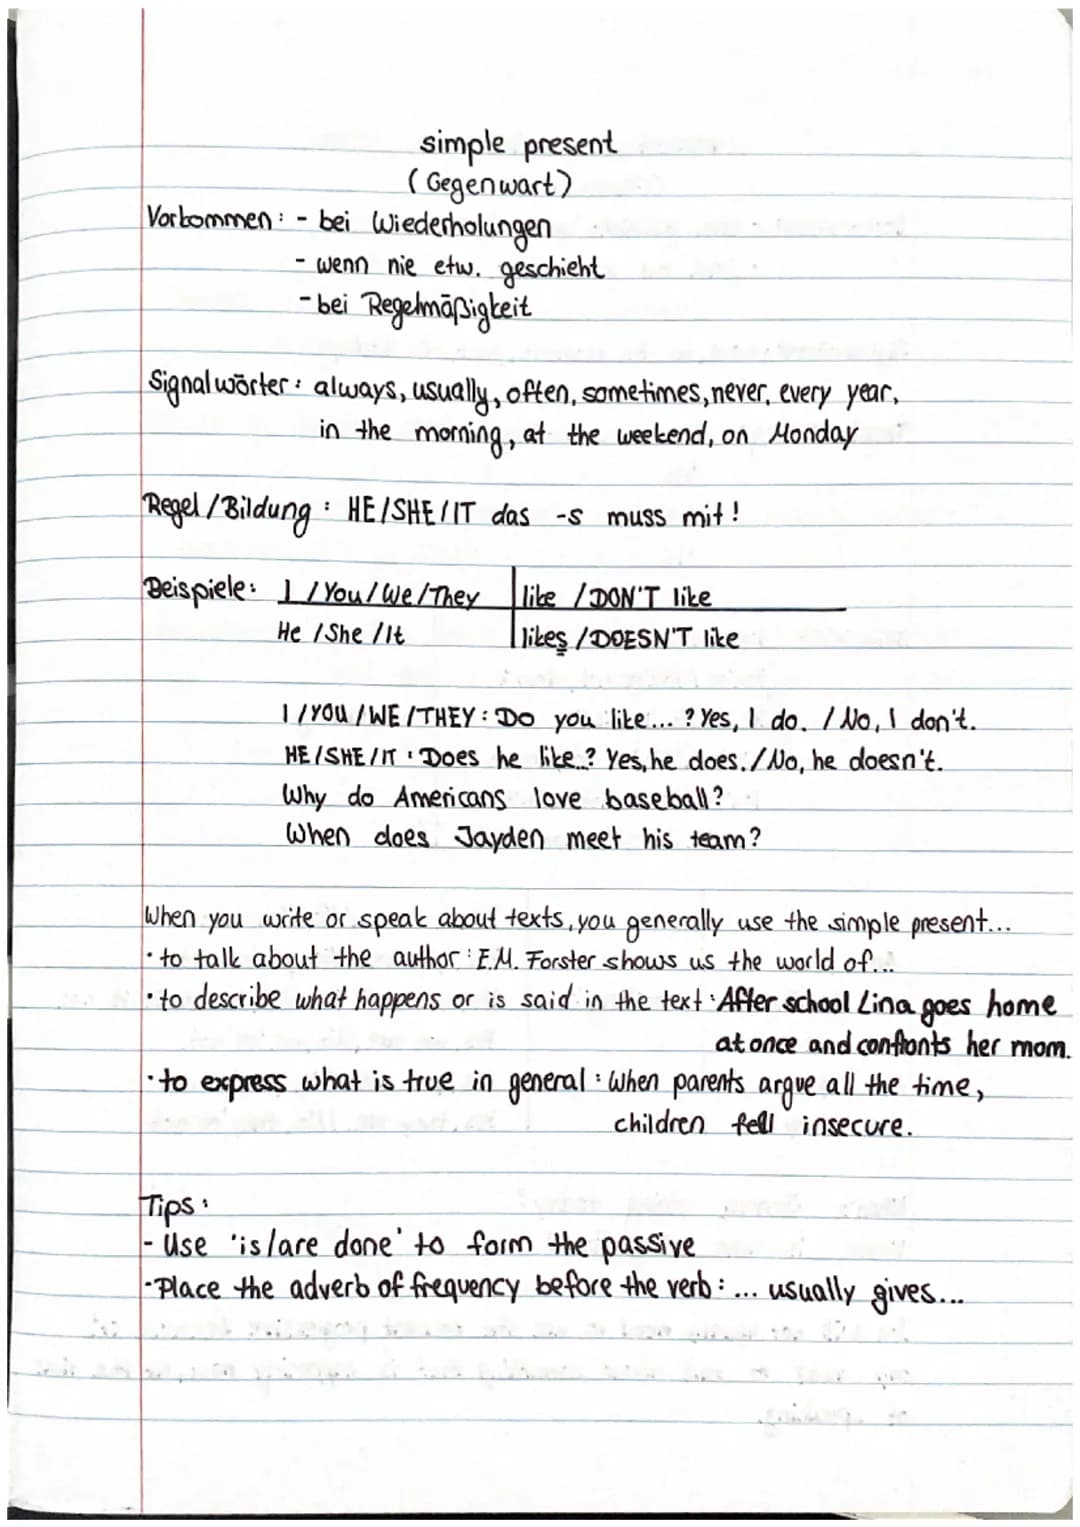 simple present
(Gegenwart)
Vorkommen: - bei Wiederholungen
- wenn nie etw. geschieht
- bei Regelmäßigkeit
Signalwörter: always, usually, often, sometimes, never, every year,
in the morning, at the weekend, on Monday
Regel/Bildung: HE/SHE/IT das -s muss mit!
Beispiele: I/You/We/They | like / DON'T like
He/She/It | likes / DOESN'T like
I/YOU/WE/THEY: Do you like...? Yes, I do. / No, I don't.
HE/SHE/IT: Does he like..? Yes, he does. / No, he doesn't.
Why do Americans love baseball?
When does Jayden meet his team?
When you write or speak about texts, you generally use the simple present...
• to talk about the author: E.M. Forster shows us the world of...
• to describe what happens or is said in the text: After school Lina goes home
at once and confronts her mom.
• to express what is true in general: When parents argue all the time,
children fell insecure.
Tips:
- Use 'is/are done' to form the passive
- Place the adverb of frequency before the verb: ... usually gives...